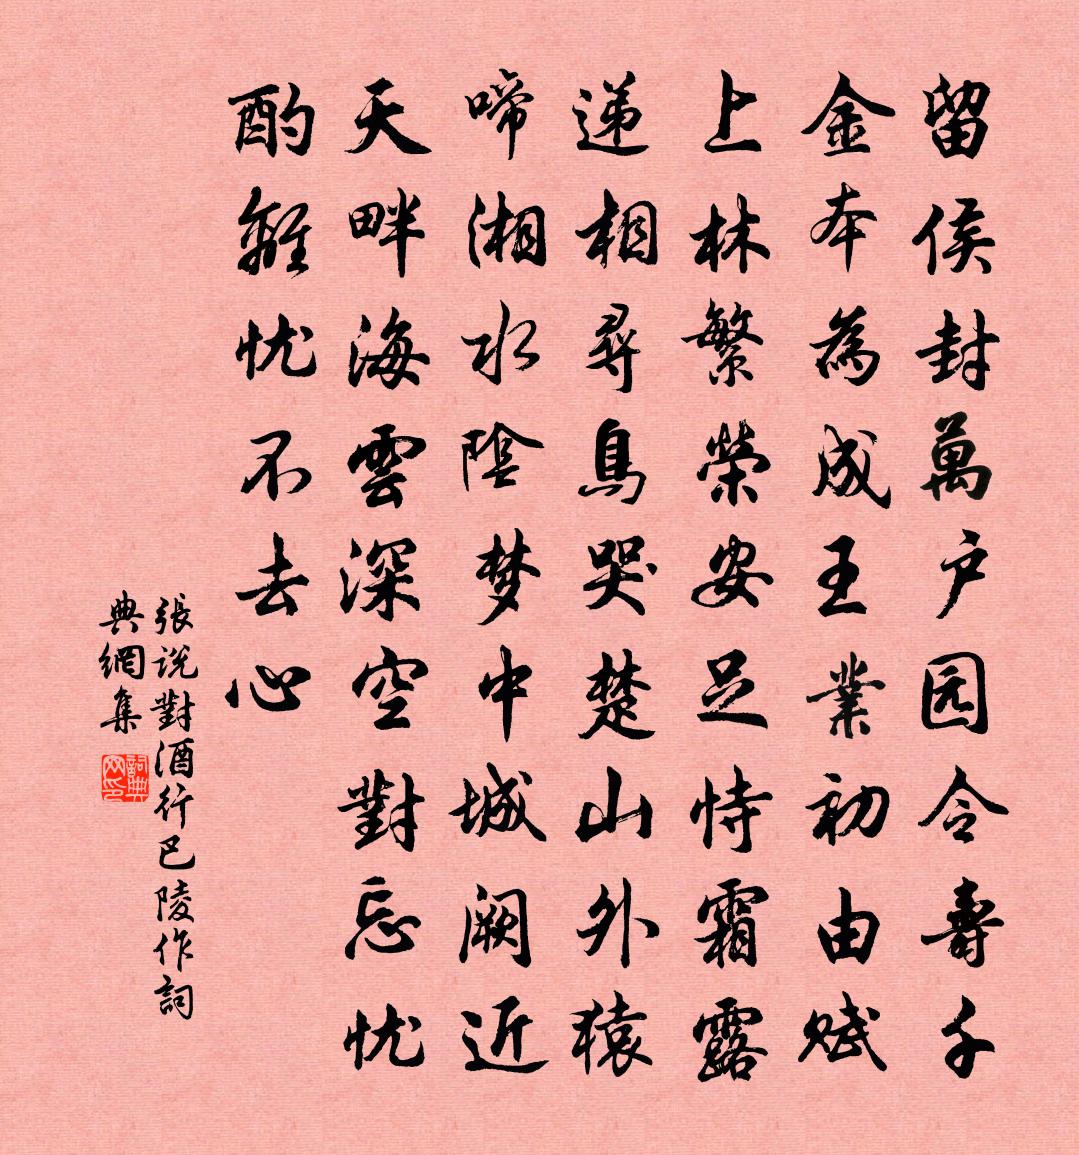 留侯封萬户园令壽千
金本為成王業初由賦
上林繁榮安足恃霜露
递相尋鳥哭楚山外猿
啼湘水陰梦中城阙近
天畔海雲深空對忘忧
酌離忧不去心
張說對酒行巴陵作詞
典網集
詞典网印